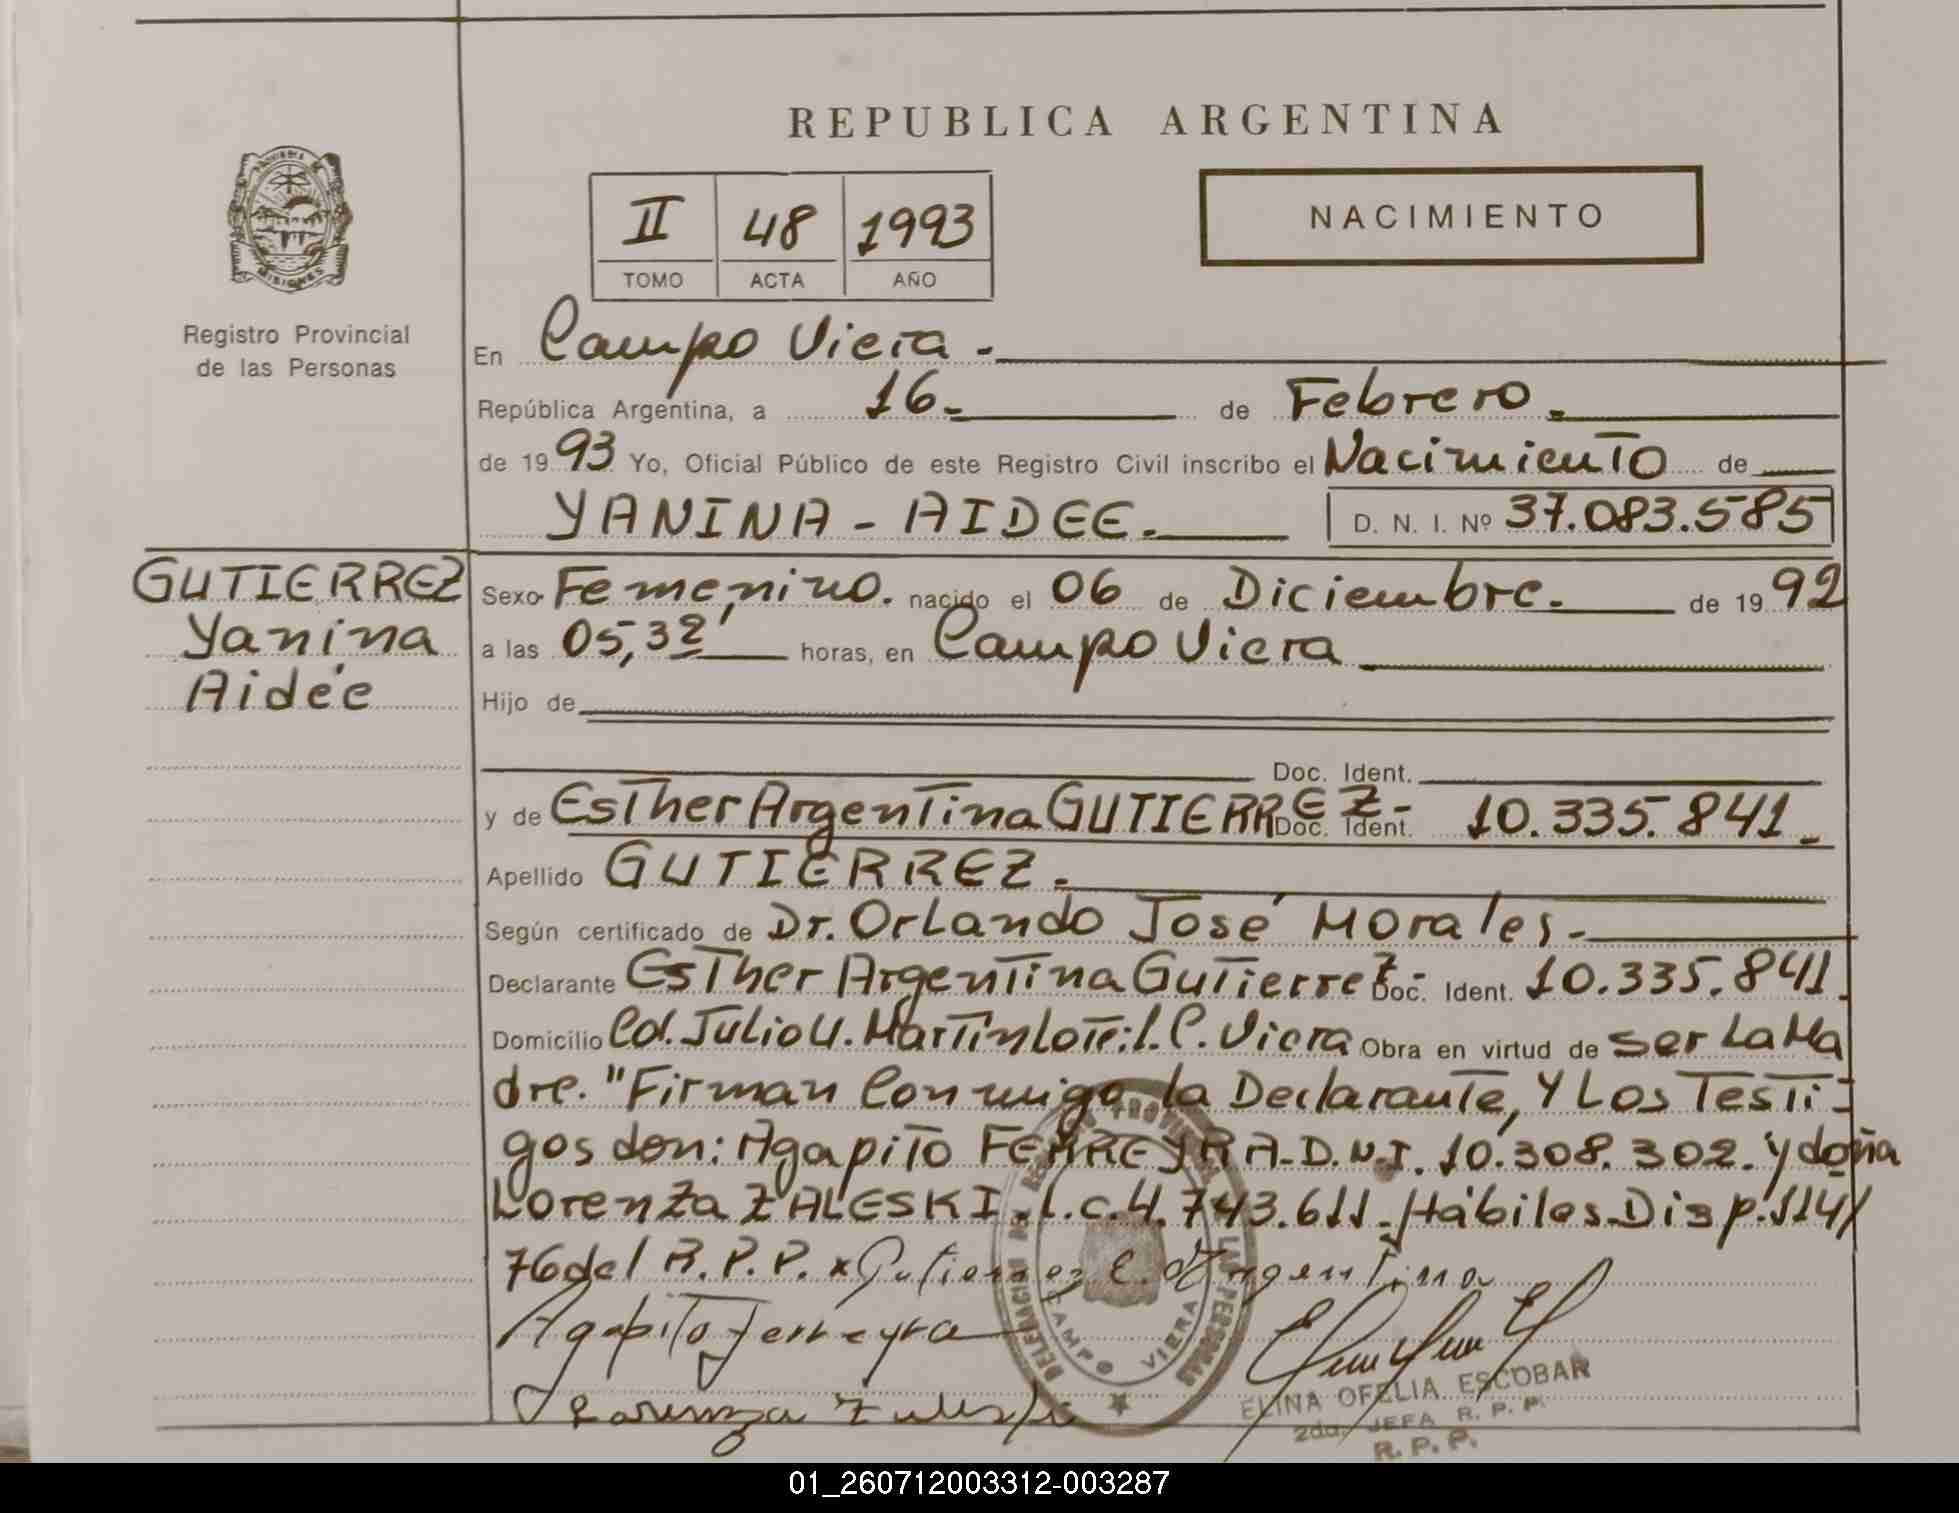 REPUBLICA ARGENTINA
II 48 1993
TOMO ACTA AÑO
NACIMIENTO
MISIONES
Registro Provincial
de las Personas
En Campo Viera.
República Argentina, a 16. de Febrero.
de 1993 Yo, Oficial Público de este Registro Civil inscribo el Nacimiento de
YANINA - AIDEE. D. N. I. Nº 37.083.585
GUTIERREZ
Yanina
Aidée
Sexo Femenino. nacido el 06 de Diciembre. de 1992
a las 05,32' horas, en Campo Viera
Hijo de
Doc. Ident.
y de Esther Argentina GUTIERREZ- Doc. Ident. 10.335.841.
Apellido GUTIERREZ.
Según certificado de Dr. Orlando José Morales.
Declarante Esther Argentina Gutierrez- Doc. Ident. 10.335.841.
Domicilio Cd. Julio U. Martin Lote: 1. C. Viera Obra en virtud de ser La Ma
dre. "Firman Conmigo la Declarante, Y Los Testi-
gos don: Agapito FERREYRA-D.N.I. 10.308.302. y doña
Lorenza ZALESKI. L.C.4.743.611. Hábiles-Disp. 114/
76 del R.P.P. x Gutierrez E. Argentina
Agapito Ferreyra
Lorenza Zaleski
DELEGACION DEL REGISTRO PROVINCIAL DE LAS PERSONAS
CAMPO VIERA
ELINA OFELIA ESCOBAR
2da. JEFA R. P. P.
R. P. P.
01_260712003312-003287